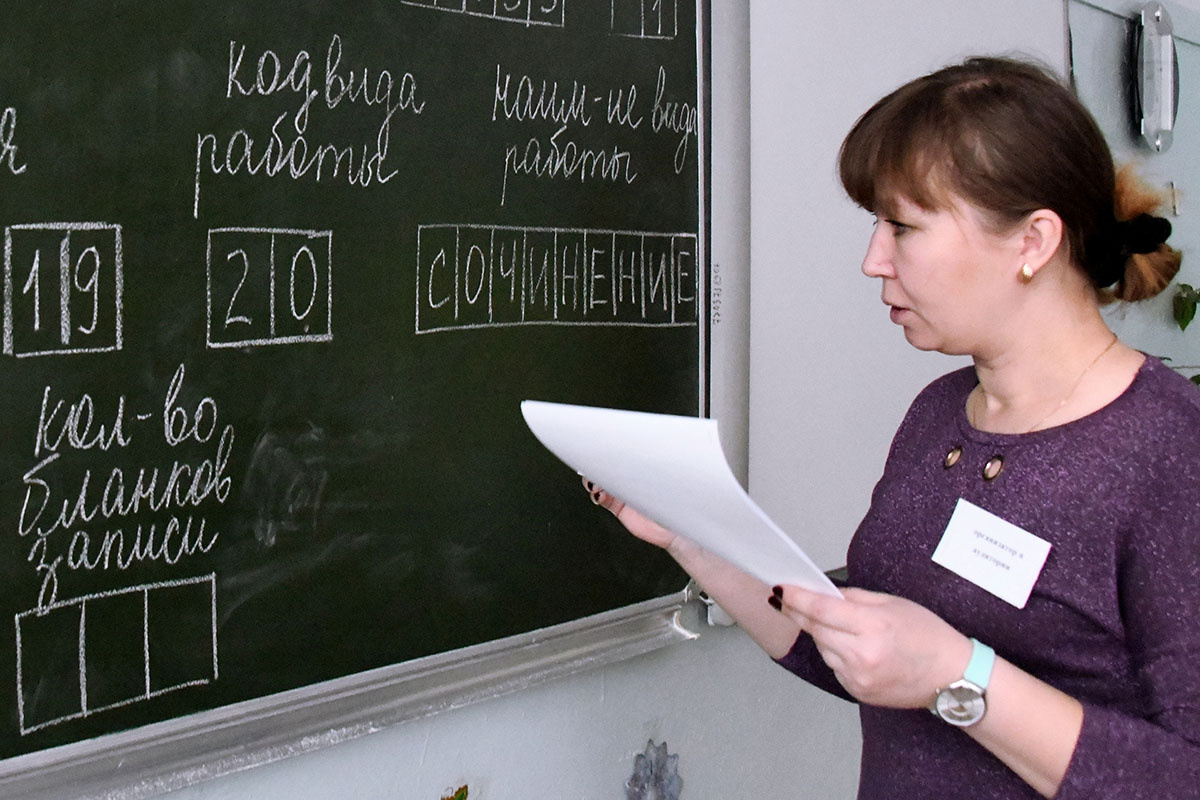 1
код вида
работы
наим-не вида
работы
я
19
20
СОЧИНЕНИЕ
кол-во
бланков
записи
организатор в
аудитории